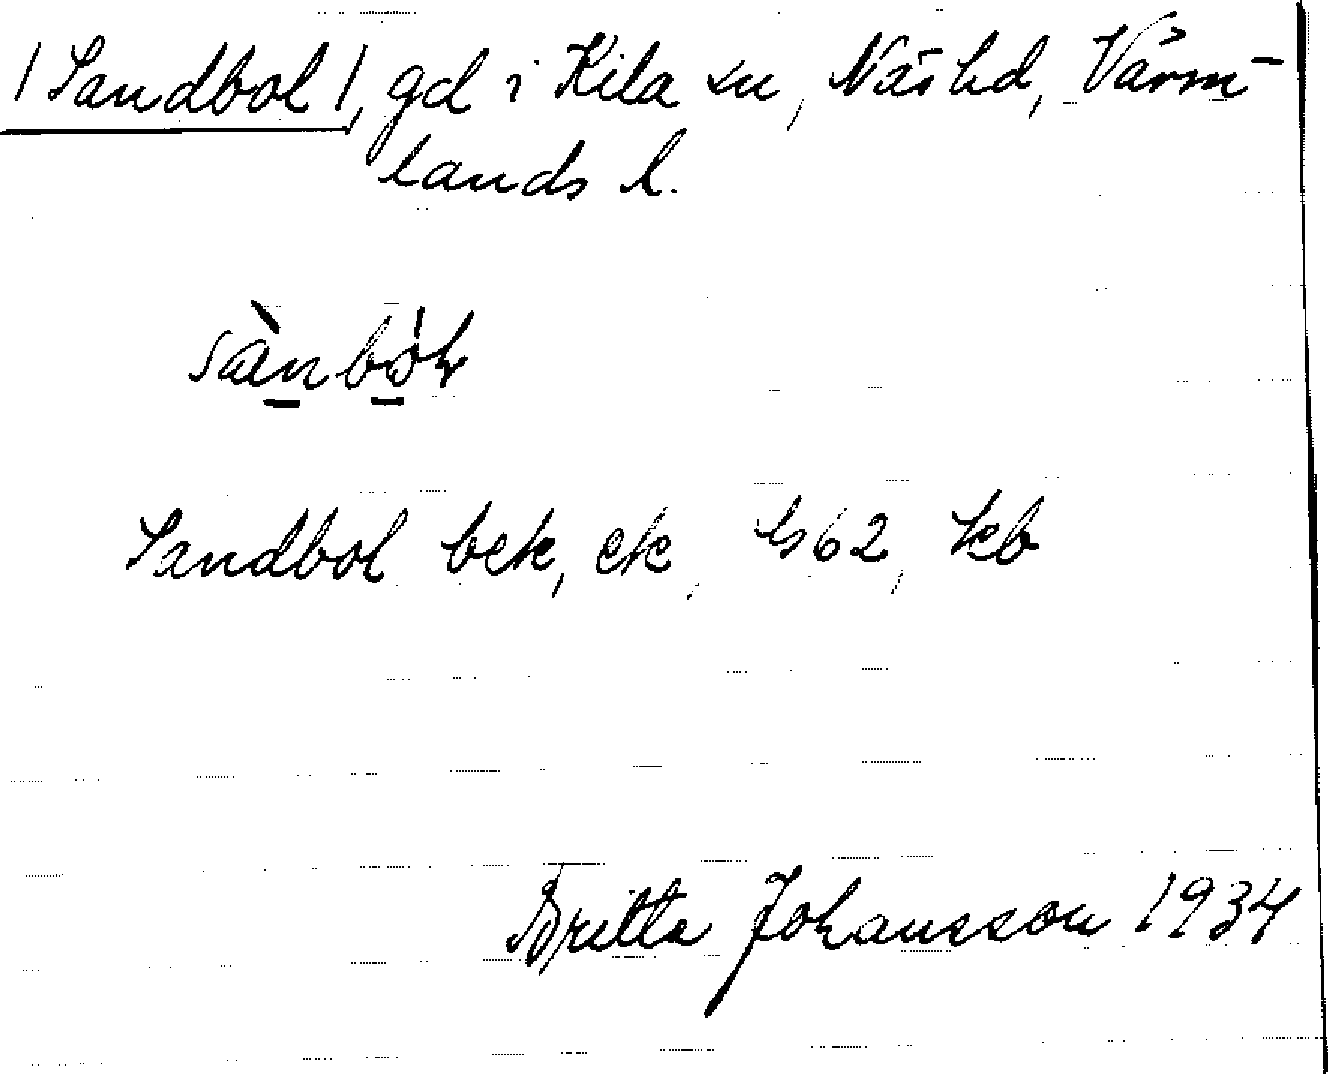 /Sandbol/, gd i Kila sn, Näs hd, Värm-
lands l.
sànbo̍ɫ
Sandbol bek, ek, GS62, kb
Britta Johansson 1934